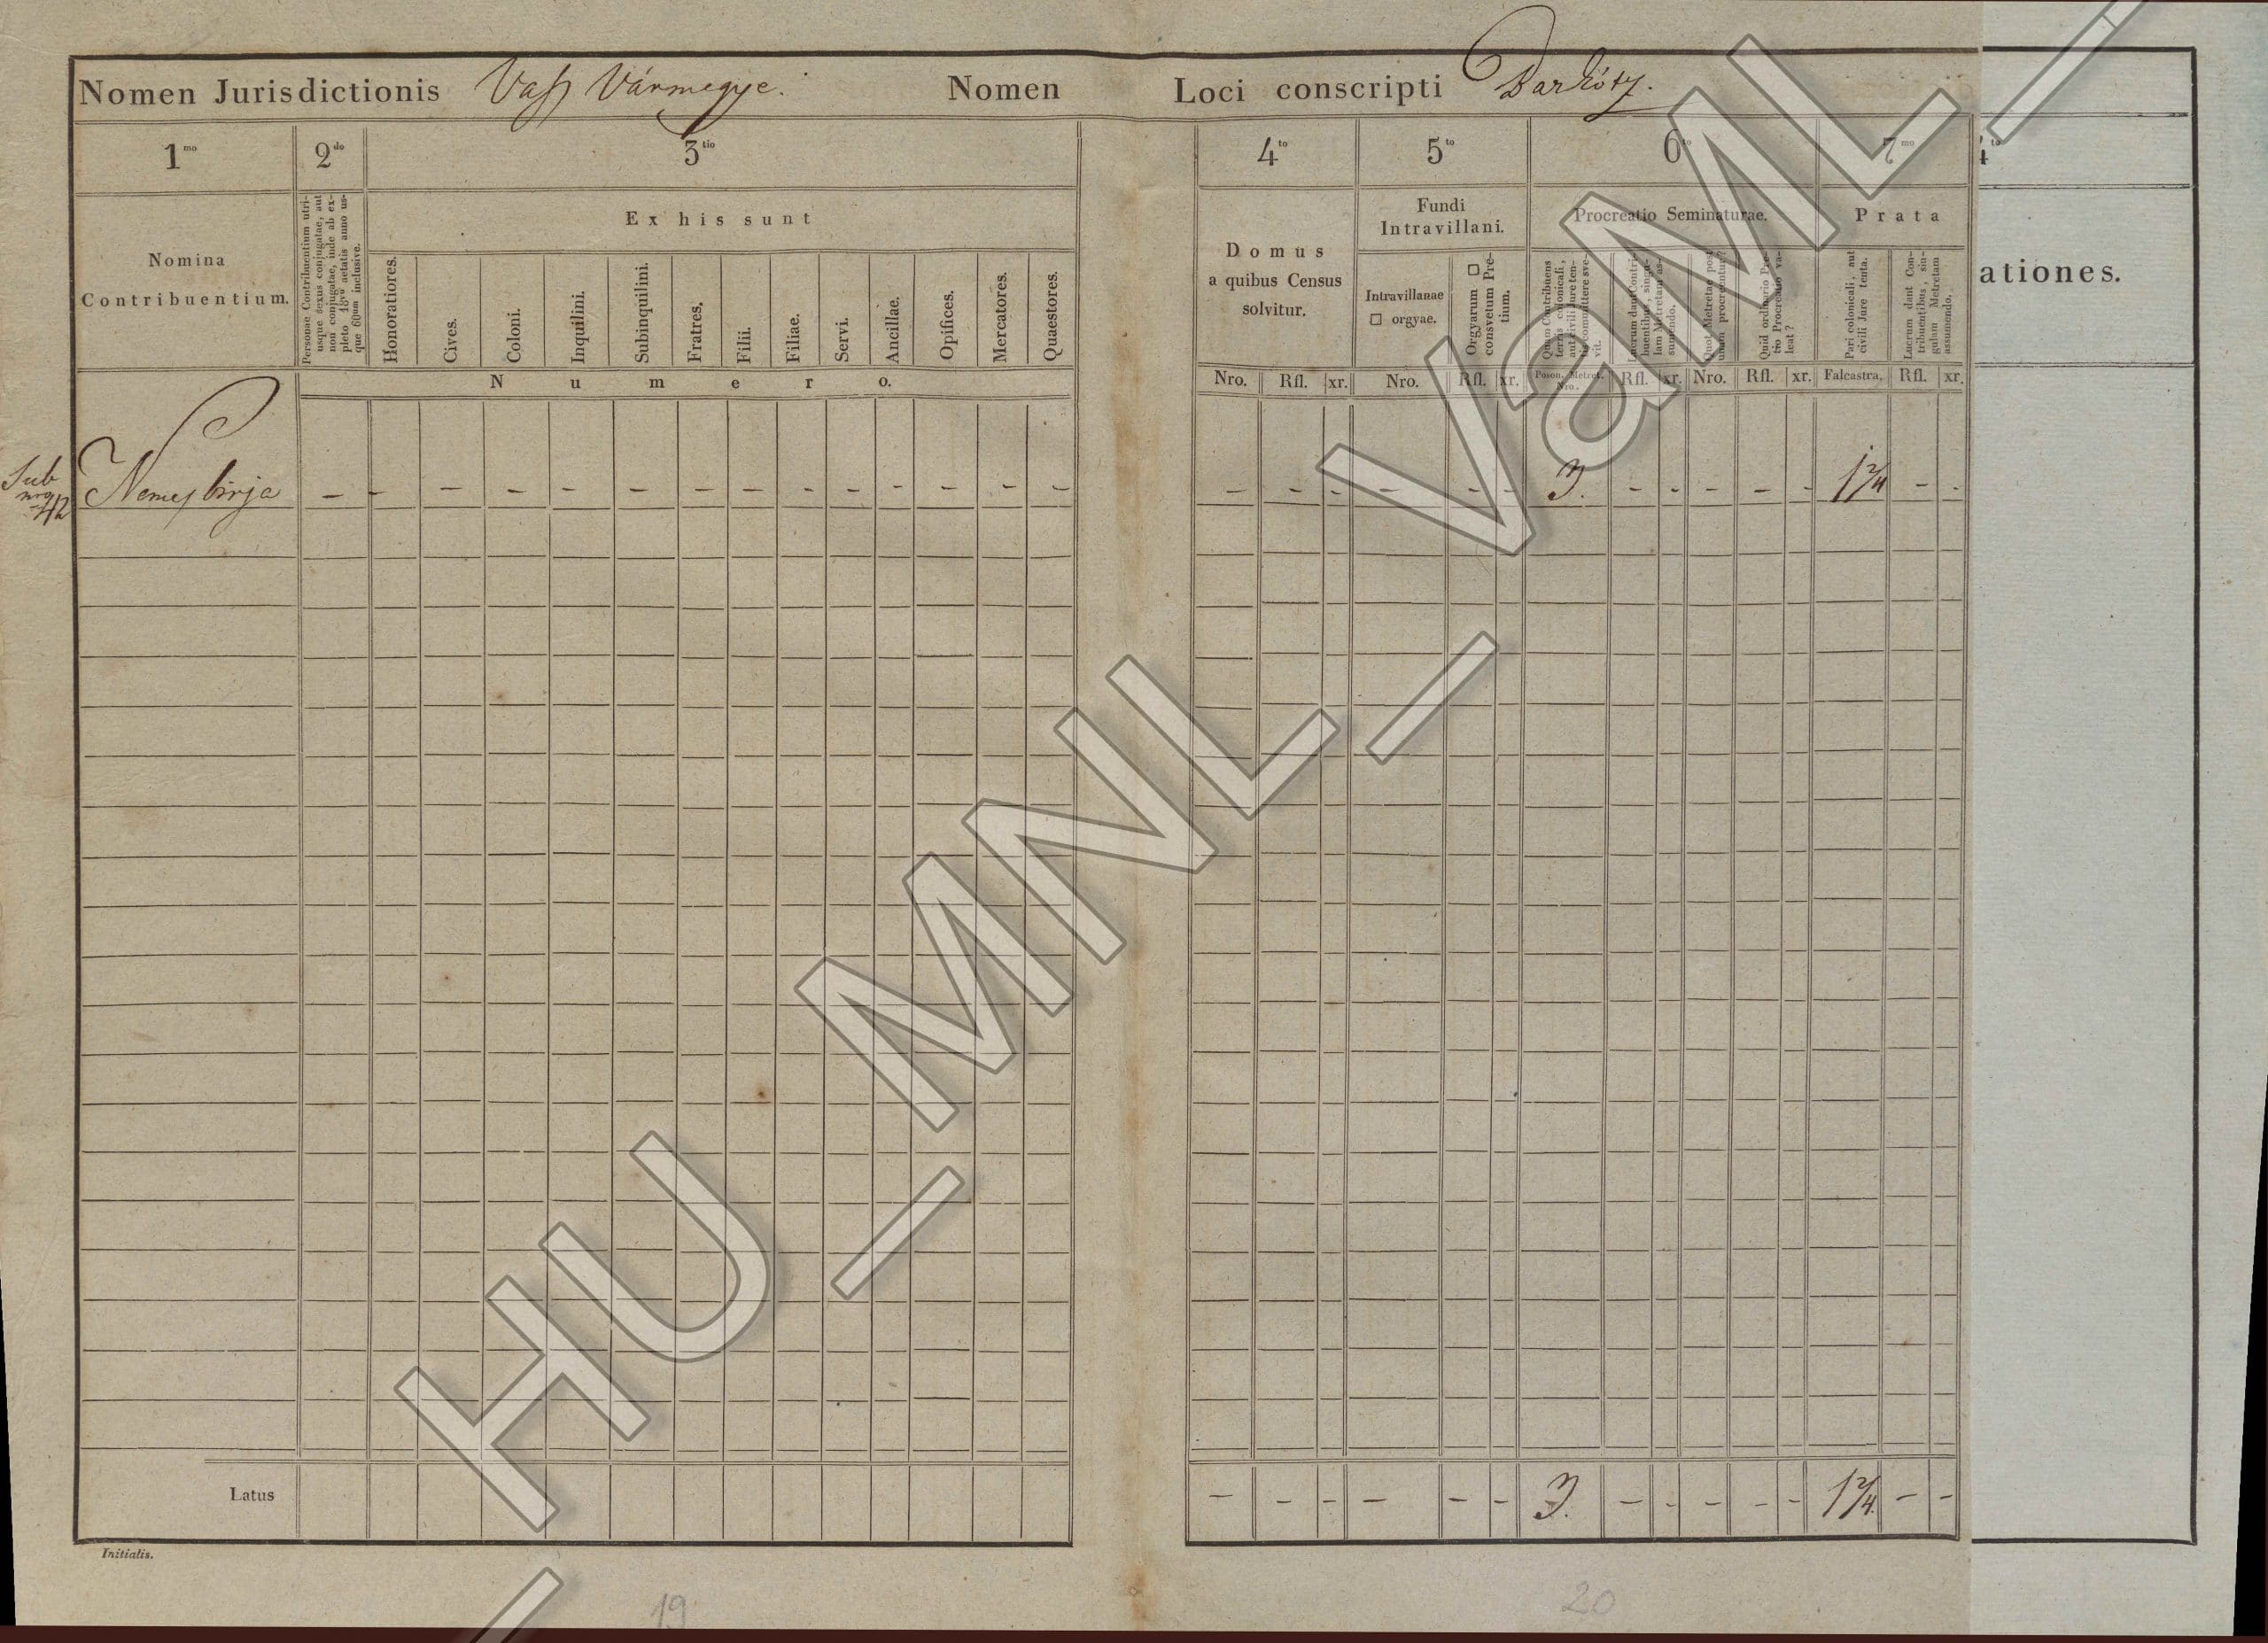 Nomen Jurisdictionis Vass Vármegye. Nomen Loci conscripti
1mo 2do 3tio 4to 5to 6to 7mo 4to
Nomina
Contribuentium.
Personae Contribuentium utri-
usque sexus conjugatae, aut
non conjugatae, inde ab ex-
pleto 16to aetatis anno us-
que 60mum inclusive.
Ex his sunt
Honoratiores.
Cives.
Coloni.
Inquilini.
Subinquilini.
Fratres.
Filii.
Filiae.
Servi.
Ancillae.
Opifices.
Mercatores.
Quaestores.
Numero.
Domus
a quibus Census
solvitur.
Fundi
Intravillani.
Intravillanae
□ orgyae.
Orgyarum □
consvetum Pre-
tium.
Procreatio Seminaturae.
Quam Contribuens
terris colonicali,
aut civili Jure ten-
tis committere sve-
vit.
Lucrum dant Contri-
buentibus, singu-
lam Metretam as-
sumendo.
Quot Metretae post
unam procreentur?
Quid ordinario Pre-
tio Procreatio va-
leat?
Prata
Pari colonicali, aut
civili Jure tenta.
Lucrum dant Con-
tribuentibus, sin-
gulam Metretam
assumendo.
ationes.
Nro. Rfl. xr. Nro. Rfl. xr. Poson. Metret. Nro. Rfl. xr. Nro. Rfl. xr. Falcastra. Rfl. xr.
Sub
nro
42
Nemes birja - - - - - - - - - - - - - - - - - - - - 3. - - - - - 1 2/4 - -
Latus - - - - - - 3. - - - - - 1 2/4. - -
Initialis.
19
20
_HU_MNL_VaML_